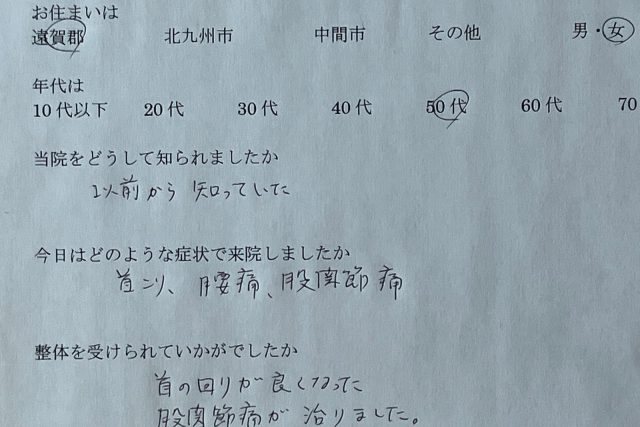 お住まいは
遠賀郡 北九州市 中間市 その他 男・女
年代は
10代以下 20代 30代 40代 50代 60代 70
当院をどうして知られましたか
以前から 知っていた
今日はどのような症状で来院しましたか
首こり、腰痛、股関節痛
整体を受けられていかがでしたか
首の回りが良くなった
股関節痛が治りました。